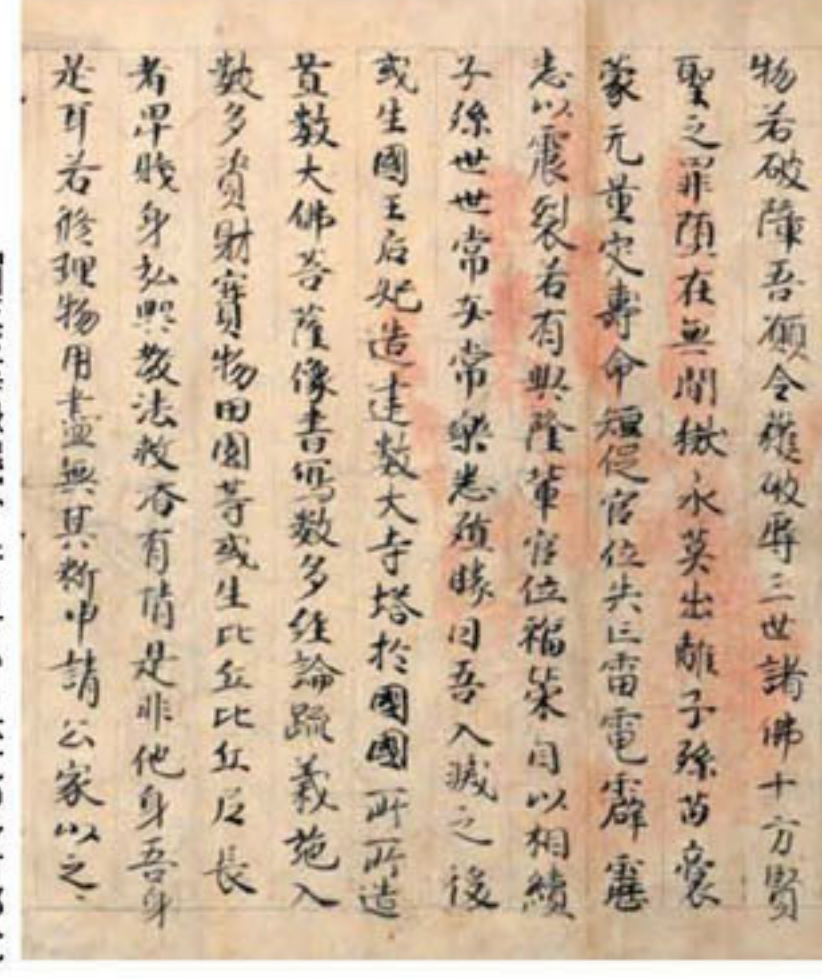 物若破障吾願令獲破辱三世諸佛十方賢
聖之罪墮在無間獄永莫出離子孫苗裔
蒙无量灾壽命短促官位失亡雷電霹靂
悉以震裂若有興隆輩官位福榮自以相續
子孫世世常安常樂悉殖勝因吾入滅之後
或生國王后妃造建數大寺塔於國國所所造
置數大佛菩薩像書寫數多經論疏義施入
數多資財寶物田園等或生比丘比丘尼長
者卑賤身弘興教法救濟有情是非他身吾身
是耳若修理物用盡無其料申請公家以之